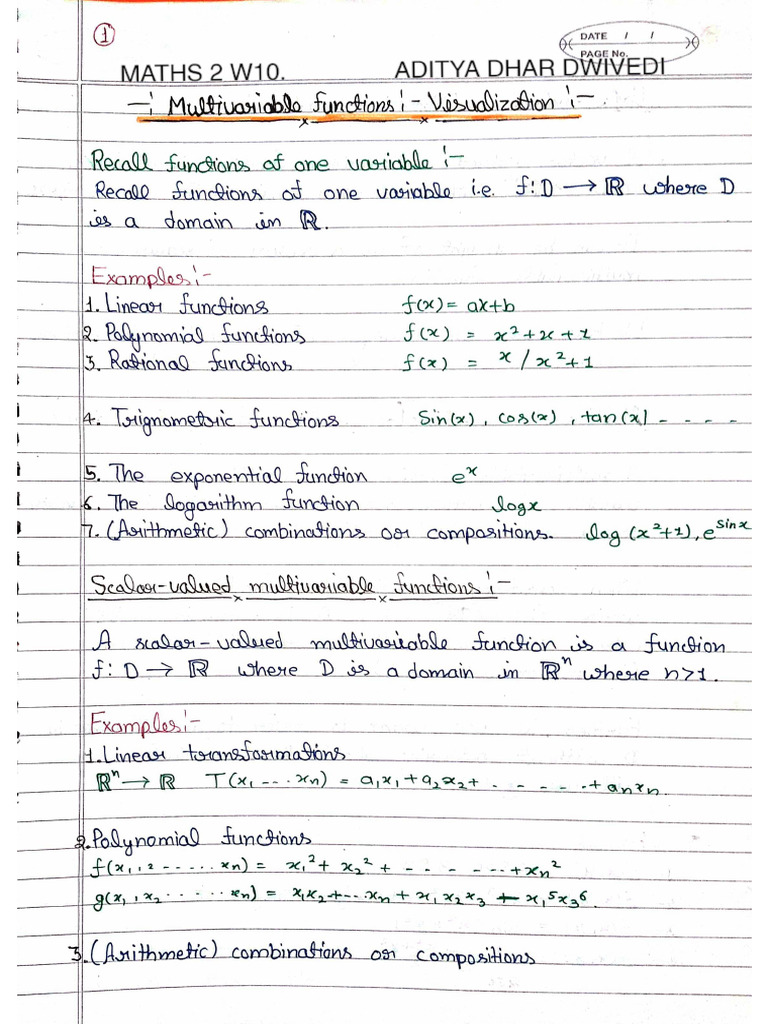 1
DATE / /
PAGE No.
MATHS 2 W10. ADITYA DHAR DWIVEDI
-: Multivariable functions :- Visualization :-
Recall functions of one variable :-
Recall functions of one variable i.e. f: D → ℝ where D
is a domain in ℝ.
Examples :-
1. Linear functions f(x) = ax+b
2. Polynomial functions f(x) = x²+x+1
3. Rational functions f(x) = x / x²+1
4. Trignometric functions Sin(x), cos(x), tan(x) - - - -
5. The exponential function eˣ
6. The logarithm function logx
7. (Arithmetic) combinations or compositions. log (x²+1), e^sinx
Scalar-valued multivariable functions :-
A scalar-valued multivariable function is a function
f: D → ℝ where D is a domain in ℝⁿ where n>1.
Examples :-
1. Linear transformations
ℝⁿ → ℝ T(x₁ ... xₙ) = a₁x₁ + a₂x₂ + - - - - - + aₙxₙ.
2. Polynomial functions
f(x₁,₂ ----- xₙ) = x₁² + x₂² + - - - - - + xₙ²
g(x₁, x₂ ..... xₙ) = x₁x₂+...xₙ + x₁x₂x₃ + x₁⁵x₃⁶.
3. (Arithmetic) combinations or compositions